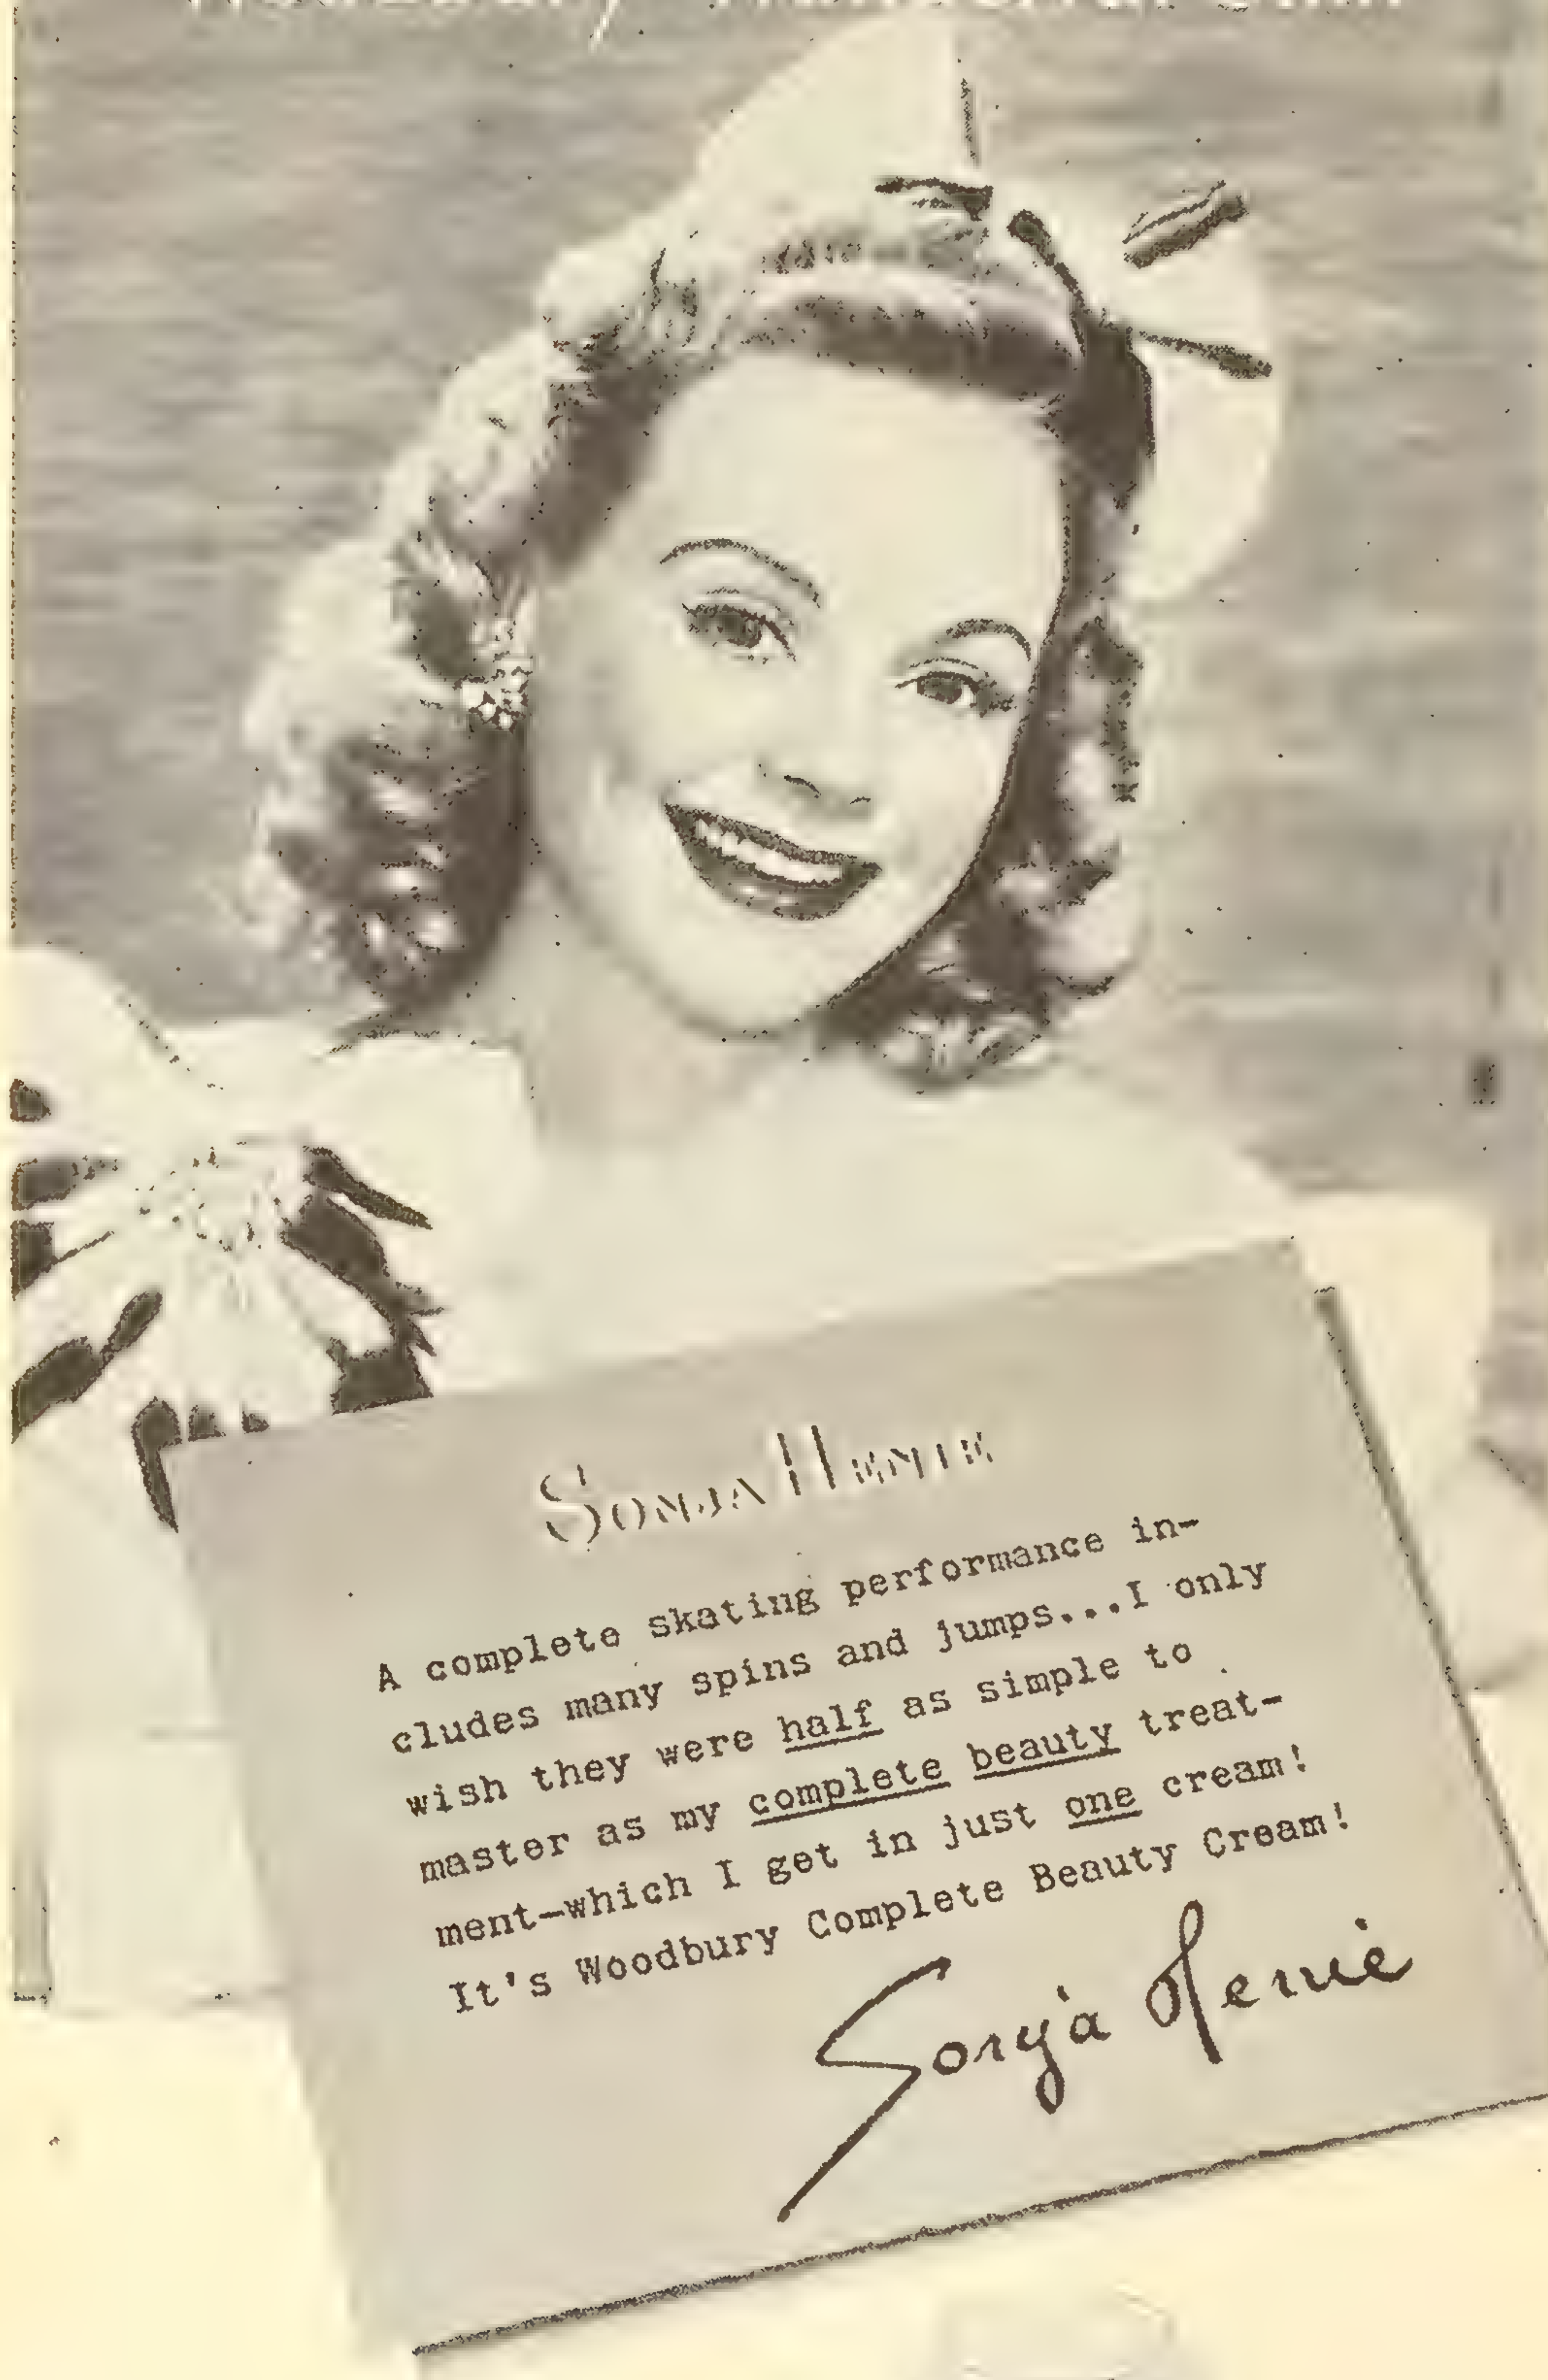 SONJA HENIE
A complete skating performance in-
cludes many spins and jumps...I only
wish they were half as simple to
master as my complete beauty treat-
ment—which I get in just one cream!
It's Woodbury Complete Beauty Cream!
Sonja Henie